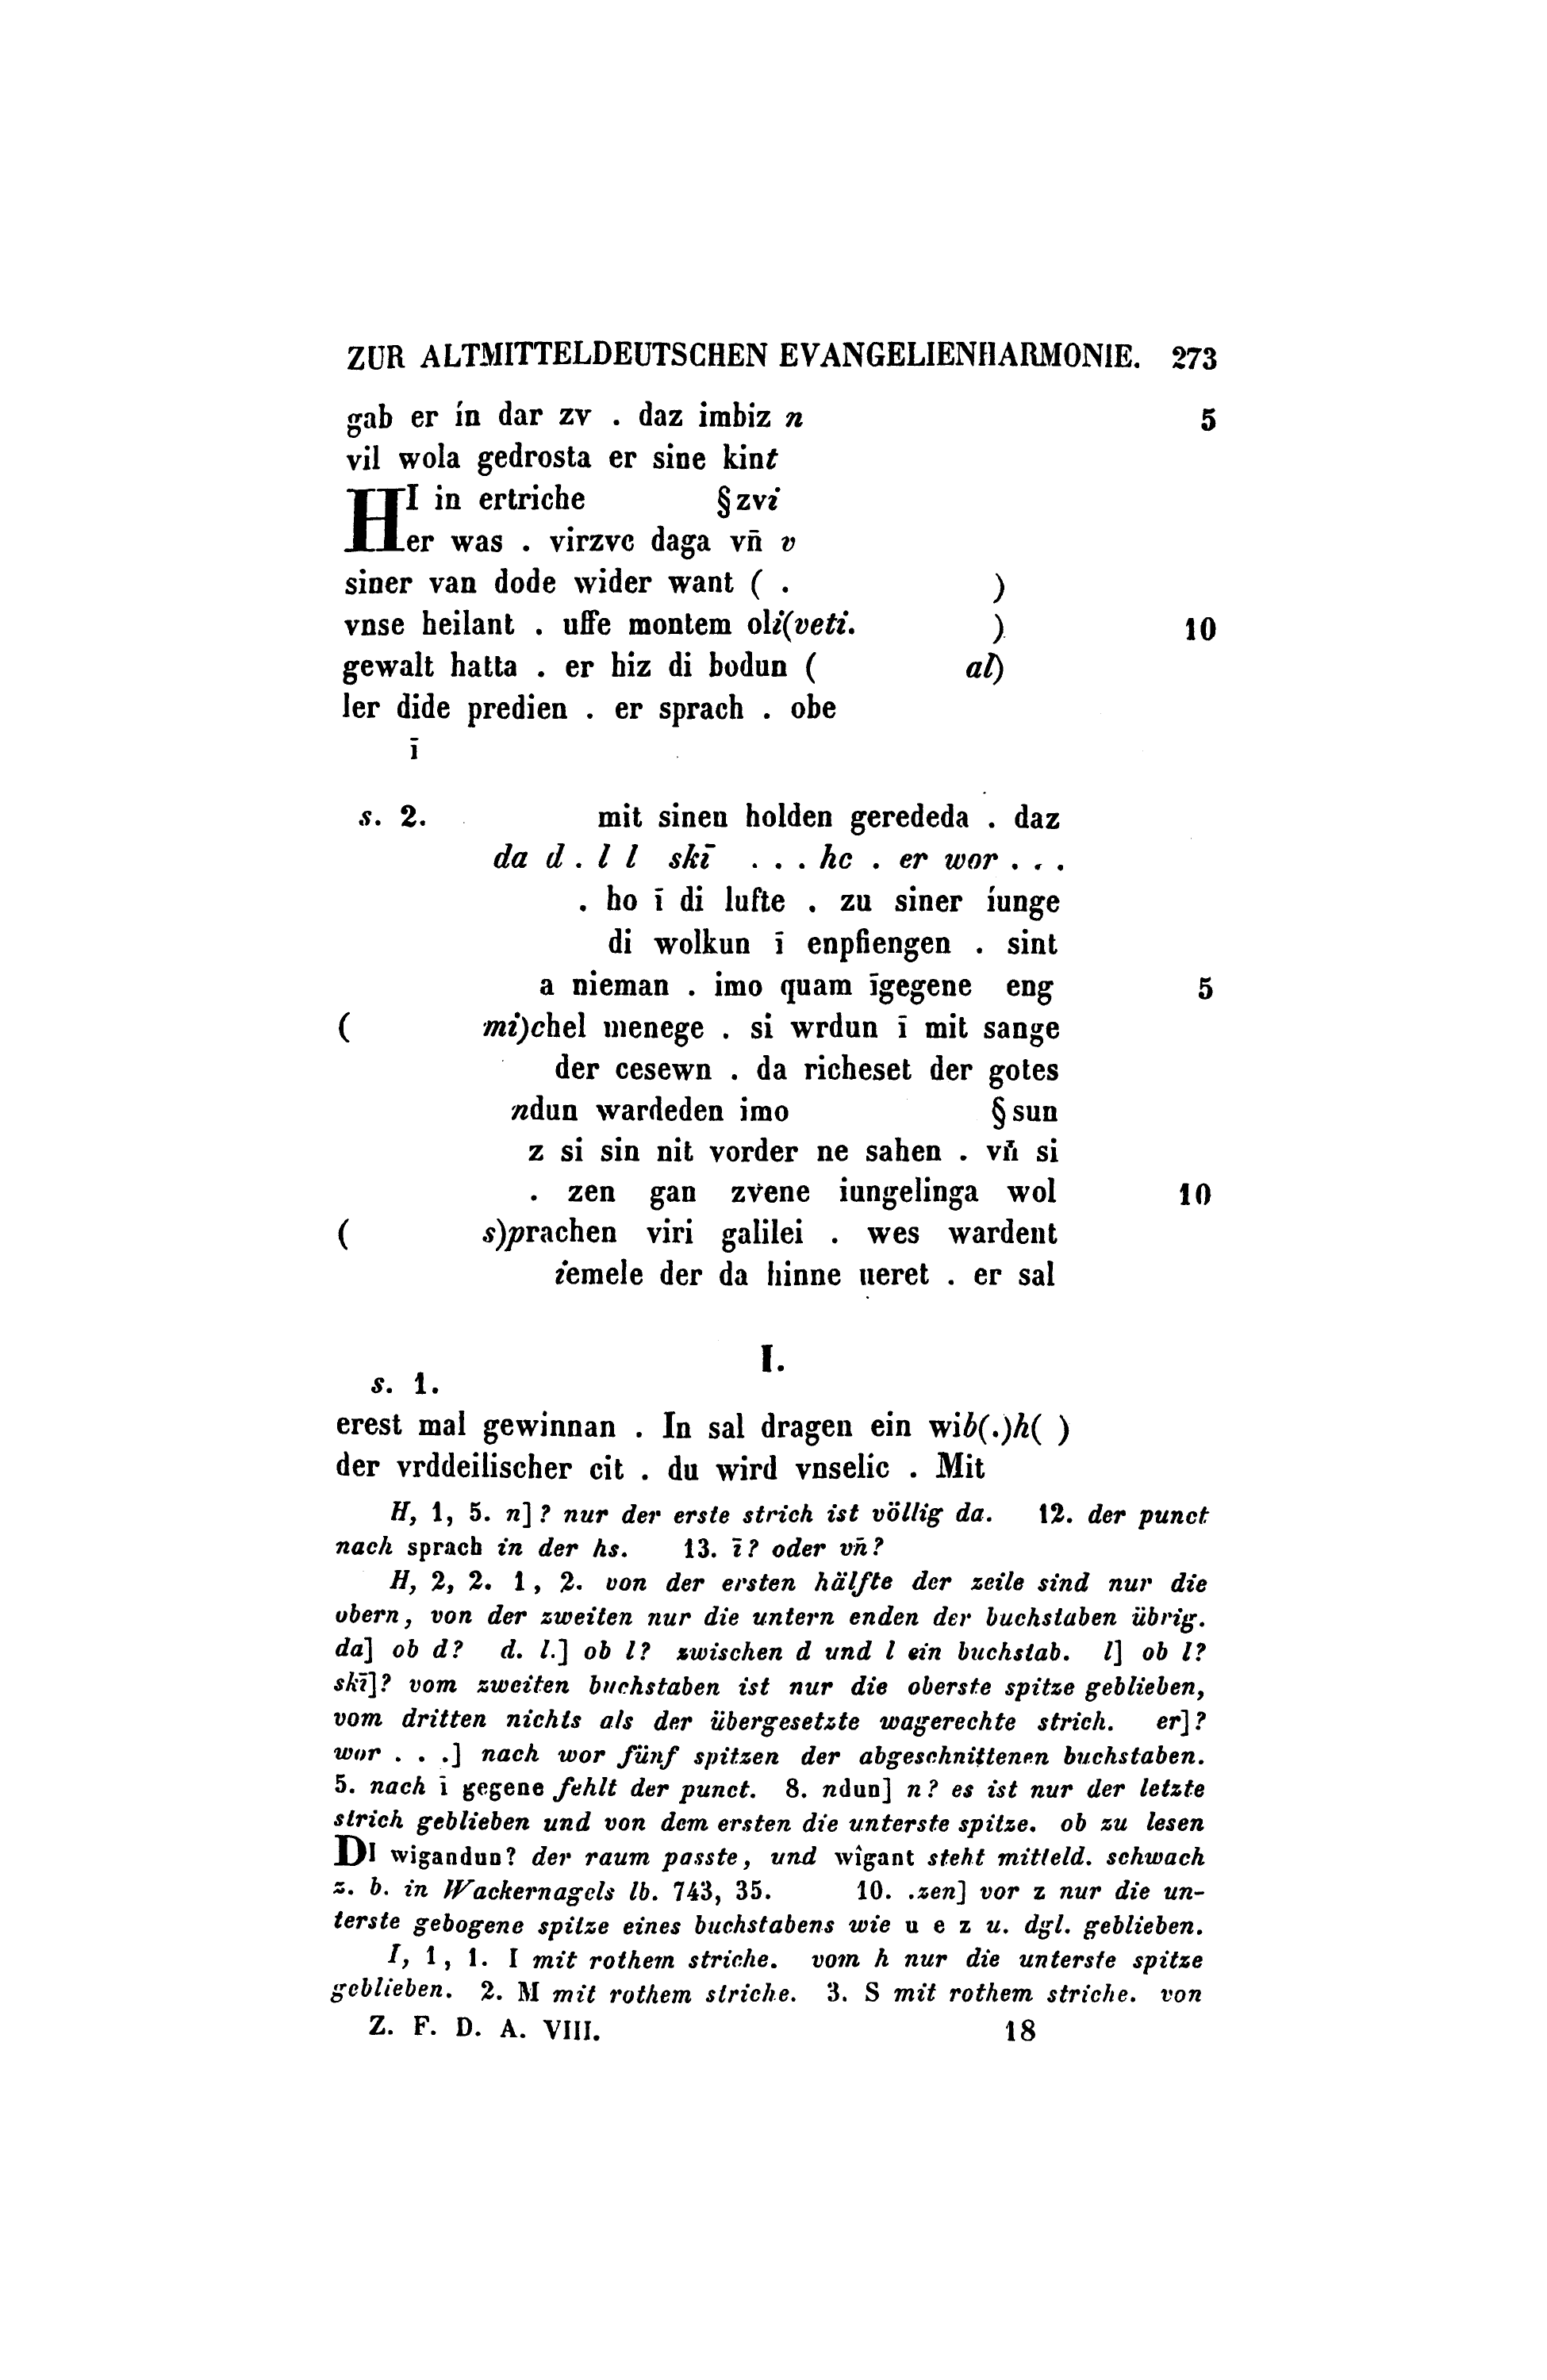 ZUR ALTMITTELDEUTSCHEN EVANGELIENHARMONIE. 273
gab er ín dar zv . daz imbiz n 5
vil wola gedrosta er sine kint
HI in ertriche § zvi
er was . virzvc daga vn̄ v
siner van dode wider want ( . )
vnse heilant . uffe montem oli(veti. ) 10
gewalt hatta . er hiz di bodun ( al)
ler dide predien . er sprach . obe
ī
s. 2. mit sinen holden gerededa . daz
da d . l l skī . . . hc . er wor . . .
. ho ī di lufte . zu siner íunge
di wolkun ī enpfiengen . sint
a nieman . imo quam īgegene eng 5
( mi)chel menege . si wrdun ī mit sange
der cesewn . da richeset der gotes
ndun wardeden imo § sun
z si sin nit vorder ne sahen . vn̄ si
. zen gan zvene iungelinga wol 10
( s)prachen viri galilei . wes wardent
iemele der da hinne ueret . er sal
I.
s. 1.
erest mal gewinnan . In sal dragen ein wib(.)h( )
der vrddeilischer cit . du wird vnselic . Mit
H, 1, 5. n]? nur der erste strich ist völlig da. 12. der punct
nach sprach in der hs. 13. ī? oder vn̄?
H, 2, 2. 1, 2. von der ersten hälfte der zeile sind nur die
obern, von der zweiten nur die untern enden der buchstaben übrig.
da] ob d? d. l.] ob l? zwischen d und l ein buchstab. l] ob l?
skī]? vom zweiten buchstaben ist nur die oberste spitze geblieben,
vom dritten nichts als der übergesetzte wagerechte strich. er]?
wor . . .] nach wor fünf spitzen der abgeschnittenen buchstaben.
5. nach ī gegene fehlt der punct. 8. ndun] n? es ist nur der letzte
strich geblieben und von dem ersten die unterste spitze. ob zu lesen
DI wigandun? der raum passte, und wîgant steht mitteld. schwach
z. b. in Wackernagels lb. 743, 35. 10. .zen] vor z nur die un-
terste gebogene spitze eines buchstabens wie u e z u. dgl. geblieben.
I, 1, 1. I mit rothem striche. vom h nur die unterste spitze
geblieben. 2. M mit rothem striche. 3. S mit rothem striche. von
Z. F. D. A. VIII. 18